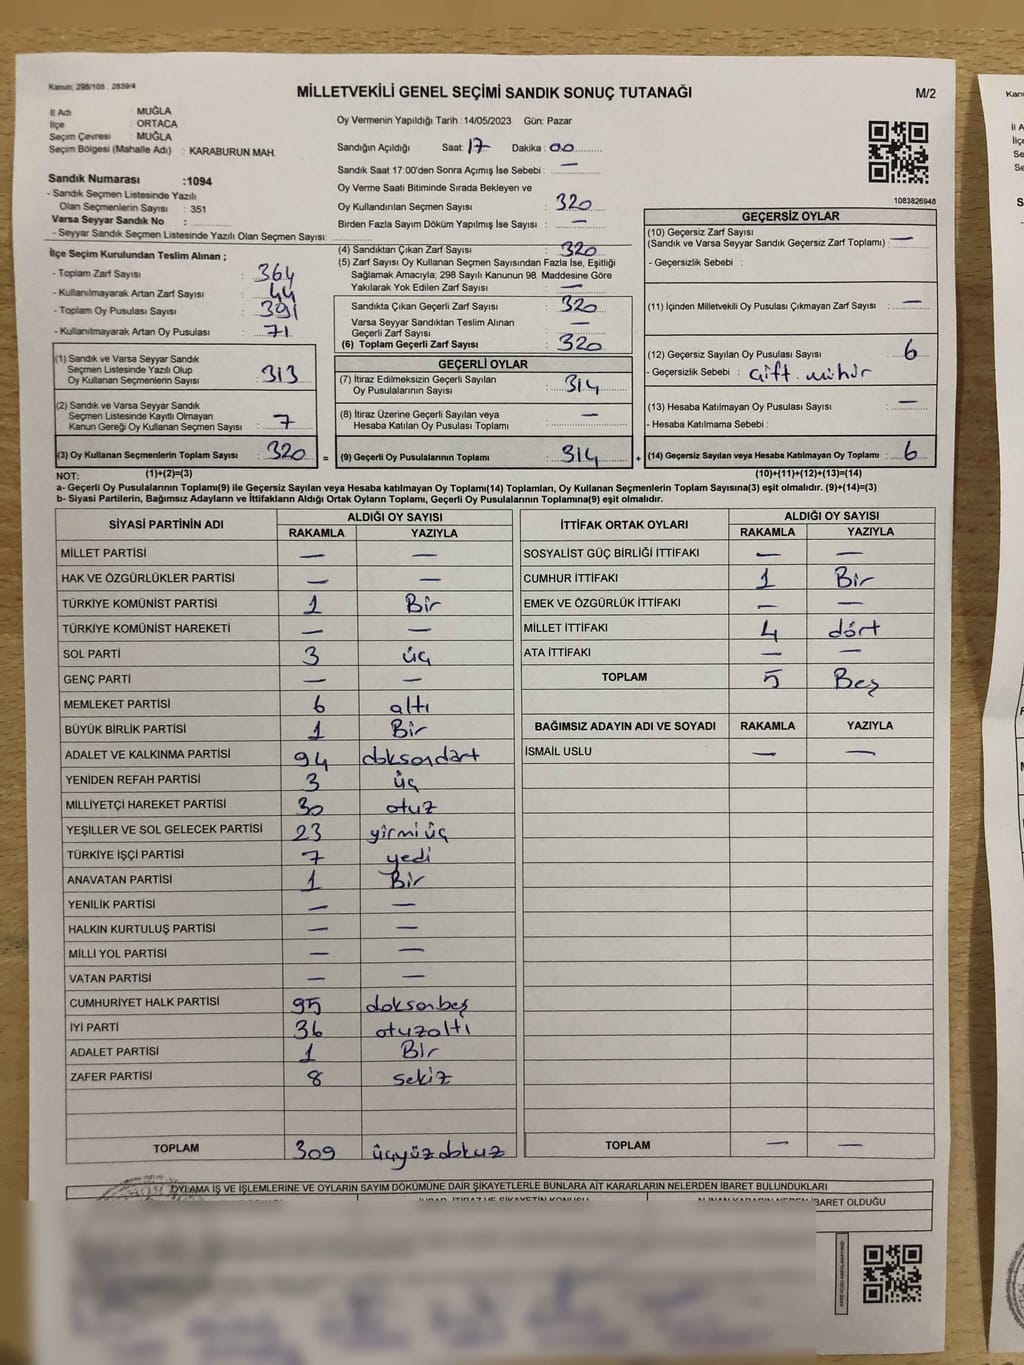 Kanun: 298/105 , 2839/4
MİLLETVEKİLİ GENEL SEÇİMİ SANDIK SONUÇ TUTANAĞI
M/2
İl Adı : MUĞLA
İlçe : ORTACA
Seçim Çevresi : MUĞLA
Seçim Bölgesi (Mahalle Adı) : KARABURUN MAH.
Sandık Numarası :1094
- Sandık Seçmen Listesinde Yazılı
Olan Seçmenlerin Sayısı : 351
Varsa Seyyar Sandık No :
- Seyyar Sandık Seçmen Listesinde Yazılı Olan Seçmen Sayısı:
İlçe Seçim Kurulundan Teslim Alınan ;
- Toplam Zarf Sayısı : 364
- Kullanılmayarak Artan Zarf Sayısı : 44
- Toplam Oy Pusulası Sayısı : 391
- Kullanılmayarak Artan Oy Pusulası : 71
(1) Sandık ve Varsa Seyyar Sandık
Seçmen Listesinde Yazılı Olup
Oy Kullanan Seçmenlerin Sayısı : 313
(2) Sandık ve Varsa Seyyar Sandık
Seçmen Listesinde Kayıtlı Olmayan
Kanun Gereği Oy Kullanan Seçmen Sayısı : 7
(3) Oy Kullanan Seçmenlerin Toplam Sayısı : 320 =
(1)+(2)=(3)
Oy Vermenin Yapıldığı Tarih :14/05/2023 Gün: Pazar
Sandığın Açıldığı Saat: 17 Dakika : 00
Sandık Saat 17:00'den Sonra Açımış İse Sebebi : —
Oy Verme Saati Bitiminde Sırada Bekleyen ve
Oy Kullandırılan Seçmen Sayısı : 320
Birden Fazla Sayım Döküm Yapılmış İse Sayısı : —
(4) Sandıktan Çıkan Zarf Sayısı : 320
(5) Zarf Sayısı Oy Kullanan Seçmen Sayısından Fazla İse, Eşitliği
Sağlamak Amacıyla; 298 Sayılı Kanunun 98. Maddesine Göre
Yakılarak Yok Edilen Zarf Sayısı : —
Sandıkta Çıkan Geçerli Zarf Sayısı : 320
Varsa Seyyar Sandıktan Teslim Alınan
Geçerli Zarf Sayısı : —
(6) Toplam Geçerli Zarf Sayısı : 320
GEÇERLİ OYLAR
(7) İtiraz Edilmeksizin Geçerli Sayılan
Oy Pusulalarının Sayısı : 314
(8) İtiraz Üzerine Geçerli Sayılan veya
Hesaba Katılan Oy Pusulası Toplamı : —
(9) Geçerli Oy Pusulalarının Toplamı : 314 +
1083826948
GEÇERSİZ OYLAR
(10) Geçersiz Zarf Sayısı
(Sandık ve Varsa Seyyar Sandık Geçersiz Zarf Toplamı) : —
- Geçersizlik Sebebi :
(11) İçinden Milletvekili Oy Pusulası Çıkmayan Zarf Sayısı : —
(12) Geçersiz Sayılan Oy Pusulası Sayısı : 6
- Geçersizlik Sebebi : Çift mühür
(13) Hesaba Katılmayan Oy Pusulası Sayısı : —
- Hesaba Katılmama Sebebi :
(14) Geçersiz Sayılan veya Hesaba Katılmayan Oy Toplamı : 6
(10)+(11)+(12)+(13)=(14)
NOT:
a- Geçerli Oy Pusulalarının Toplamı(9) ile Geçersiz Sayılan veya Hesaba katılmayan Oy Toplamı(14) Toplamları, Oy Kullanan Seçmenlerin Toplam Sayısına(3) eşit olmalıdır. (9)+(14)=(3)
b- Siyasi Partilerin, Bağımsız Adayların ve İttifakların Aldığı Ortak Oyların Toplamı, Geçerli Oy Pusulalarının Toplamına(9) eşit olmalıdır.
SİYASİ PARTİNİN ADI ALDIĞI OY SAYISI
RAKAMLA YAZIYLA
MİLLET PARTİSİ — —
HAK VE ÖZGÜRLÜKLER PARTİSİ — —
TÜRKİYE KOMÜNİST PARTİSİ 1 Bir
TÜRKİYE KOMÜNİST HAREKETİ — —
SOL PARTİ 3 üç
GENÇ PARTİ — —
MEMLEKET PARTİSİ 6 altı
BÜYÜK BİRLİK PARTİSİ 1 Bir
ADALET VE KALKINMA PARTİSİ 94 doksandört
YENİDEN REFAH PARTİSİ 3 üç
MİLLİYETÇİ HAREKET PARTİSİ 30 otuz
YEŞİLLER VE SOL GELECEK PARTİSİ 23 yirmi üç
TÜRKİYE İŞÇİ PARTİSİ 7 yedi
ANAVATAN PARTİSİ 1 Bir
YENİLİK PARTİSİ — —
HALKIN KURTULUŞ PARTİSİ — —
MİLLİ YOL PARTİSİ — —
VATAN PARTİSİ — —
CUMHURİYET HALK PARTİSİ 95 doksanbeş
İYİ PARTİ 36 otuzaltı
ADALET PARTİSİ 1 Bir
ZAFER PARTİSİ 8 sekiz
TOPLAM 309 üçyüzdokuz
İTTİFAK ORTAK OYLARI ALDIĞI OY SAYISI
RAKAMLA YAZIYLA
SOSYALİST GÜÇ BİRLİĞİ İTTİFAKI — —
CUMHUR İTTİFAKI 1 Bir
EMEK VE ÖZGÜRLÜK İTTİFAKI — —
MİLLET İTTİFAKI 4 dört
ATA İTTİFAKI — —
TOPLAM 5 Beş
BAĞIMSIZ ADAYIN ADI VE SOYADI RAKAMLA YAZIYLA
İSMAİL USLU — —
TOPLAM — —
OYLAMA İŞ VE İŞLEMLERİNE VE OYLARIN SAYIM DÖKÜMÜNE DAİR ŞİKAYETLERLE BUNLARA AİT KARARLARIN NELERDEN İBARET BULUNDUKLARI
İTİRAZ VE ŞİKAYETİN KONUSU ALINAN KARARIN NEDEN İBARET OLDUĞU